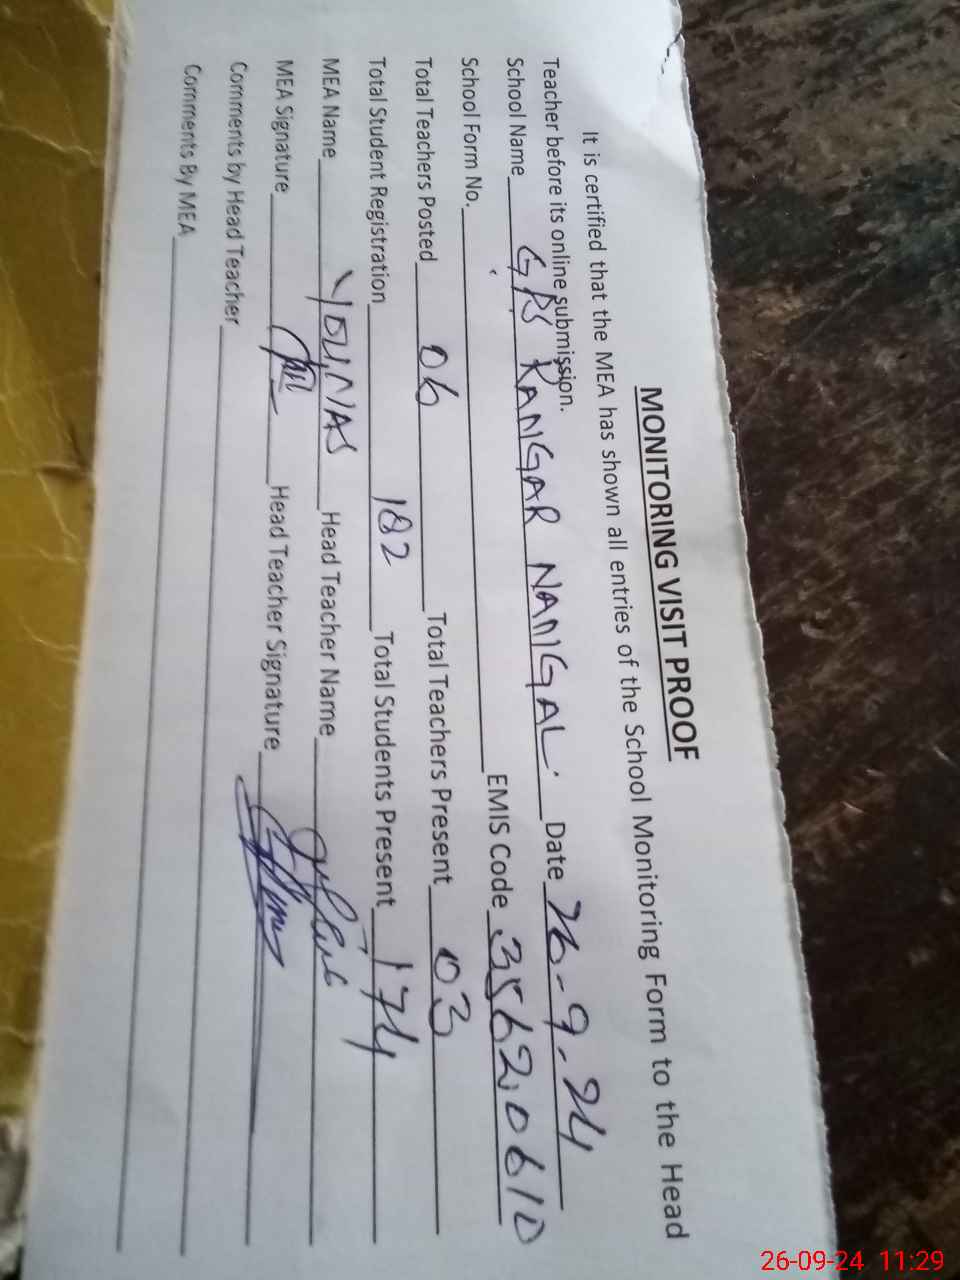 MONITORING VISIT PROOF
It is certified that the MEA has shown all entries of the School Monitoring Form to the Head
Teacher before its online submission.
School Name GPS KANGAR NANGAL. Date 26-9-24
School Form No. EMIS Code 35620610
Total Teachers Posted 06 Total Teachers Present 03
Total Student Registration 182 Total Students Present 174
MEA Name YOUNAS Head Teacher Name
MEA Signature Head Teacher Signature
Comments by Head Teacher
Comments By MEA
26-09-24 11:29